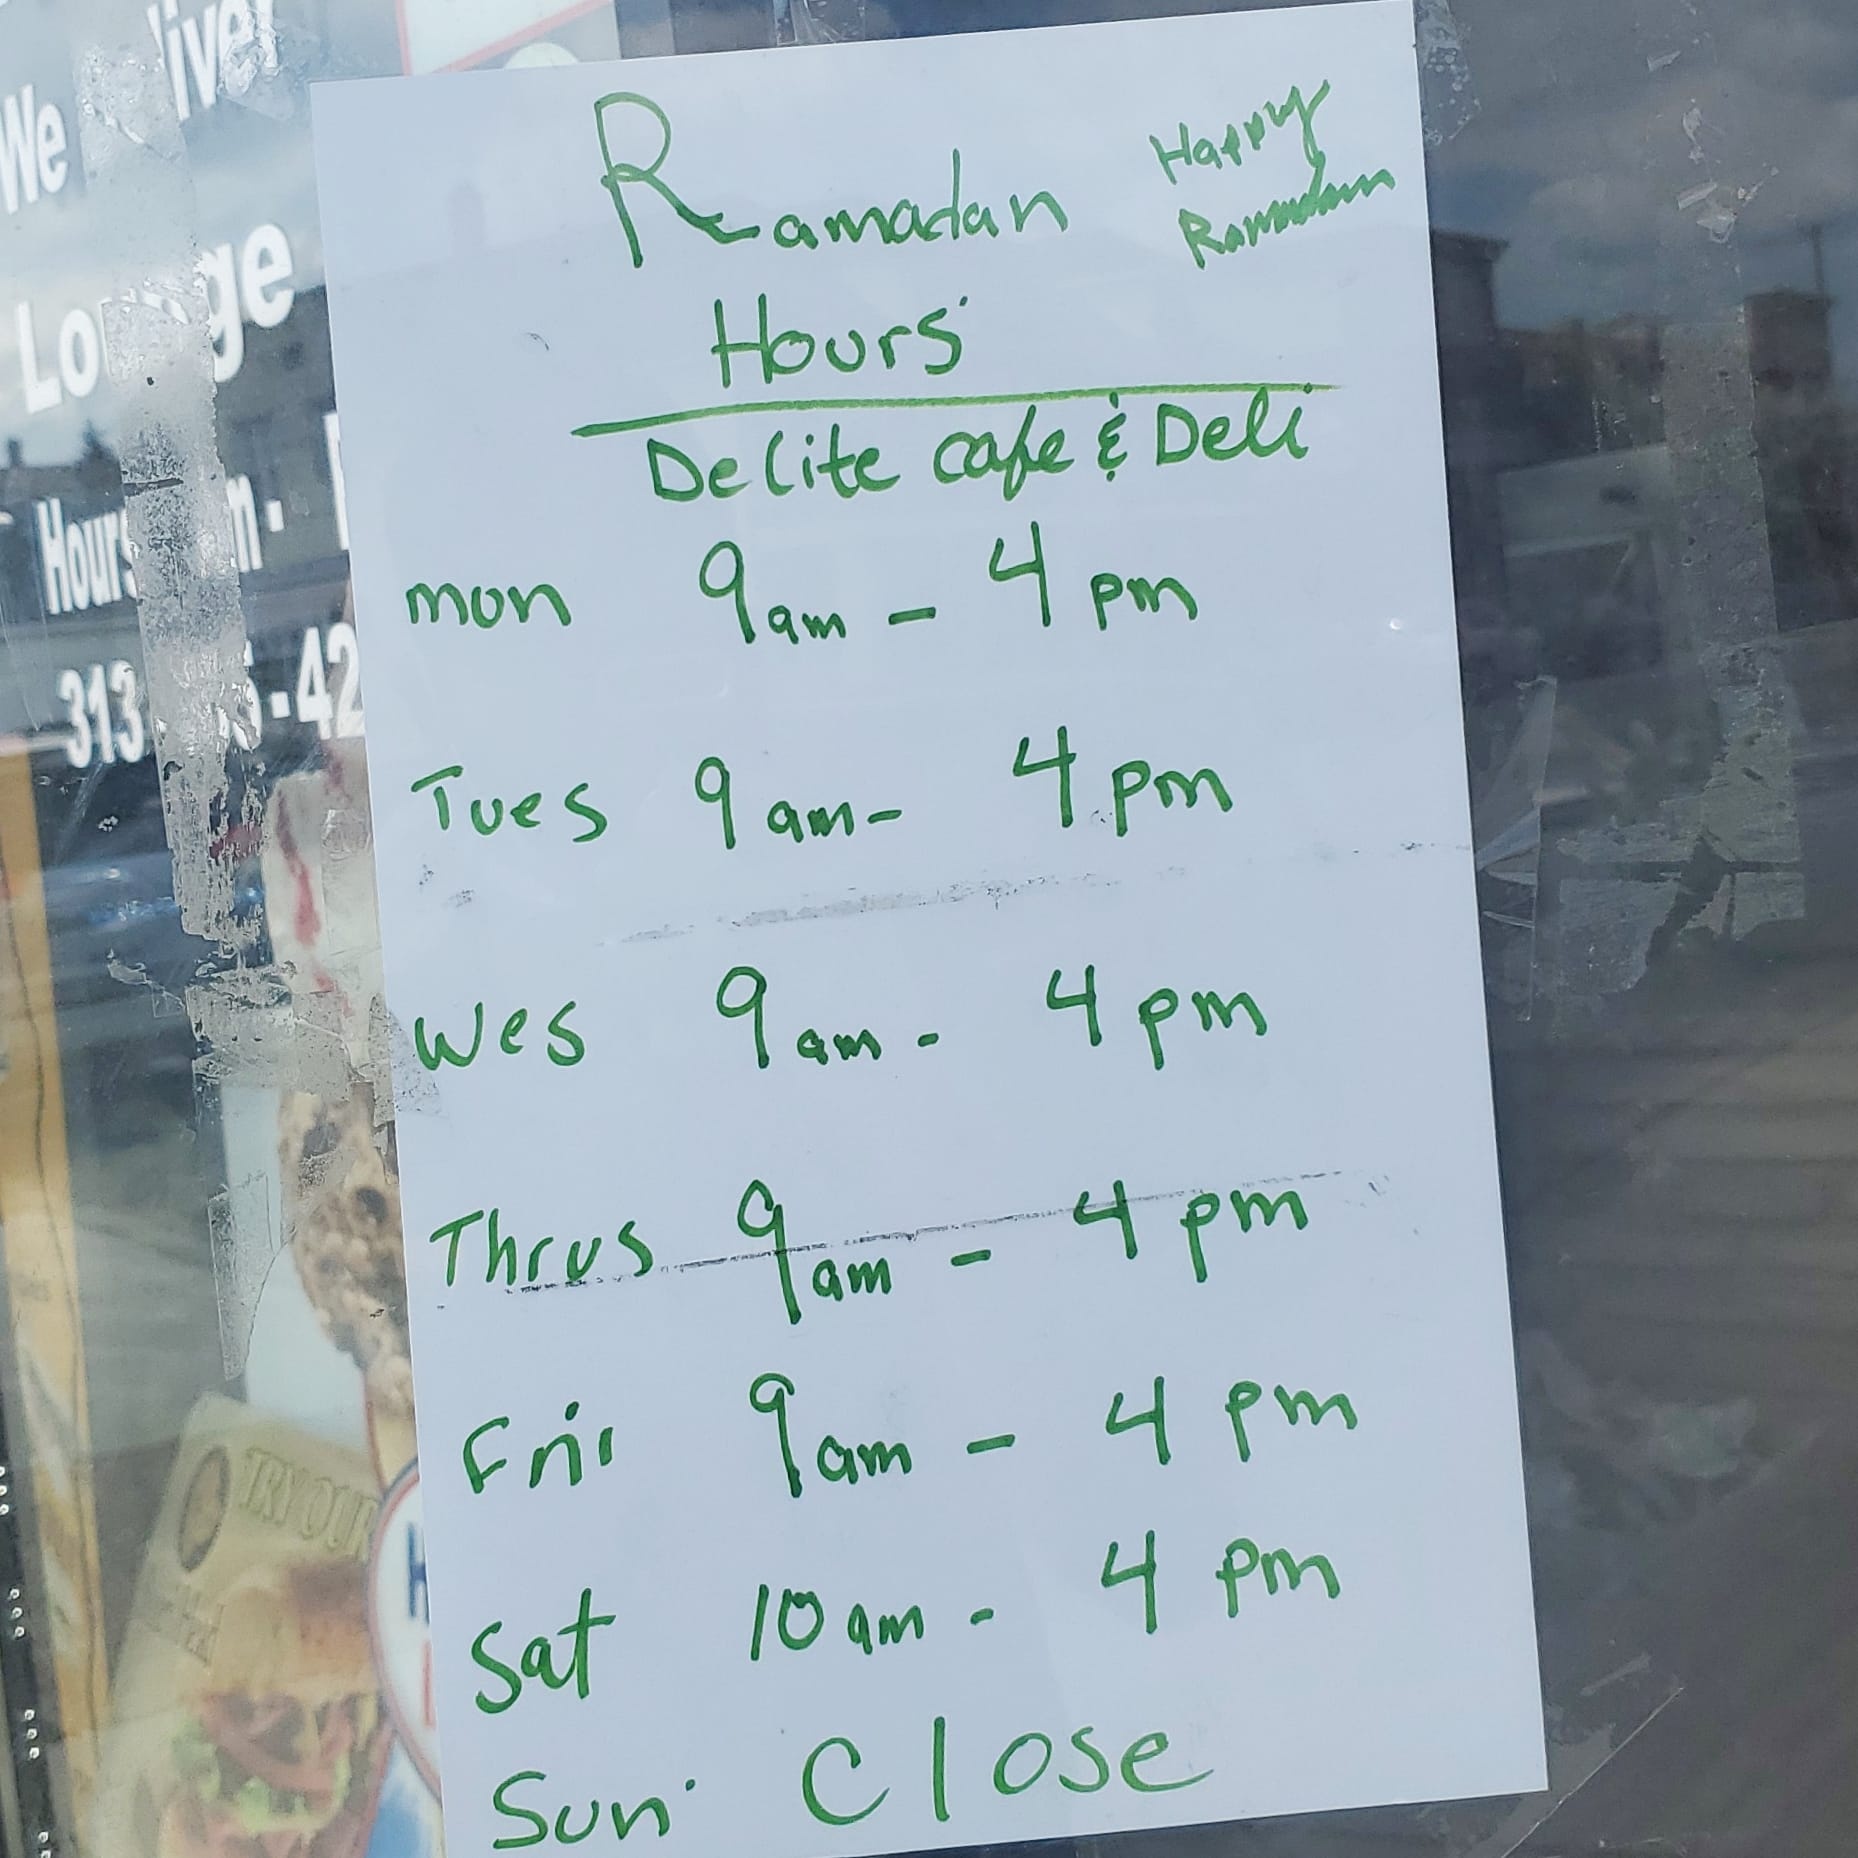 Ramadan
Hours
Happy
Ramadan
Delite cafe & Deli
mon 9am - 4pm
Tues 9am- 4pm
Wes 9am - 4pm
Thrus 9am - 4pm
Fri 9am - 4pm
Sat 10am - 4pm
Sun Close
We
Hours
313
-42
TRY OUR